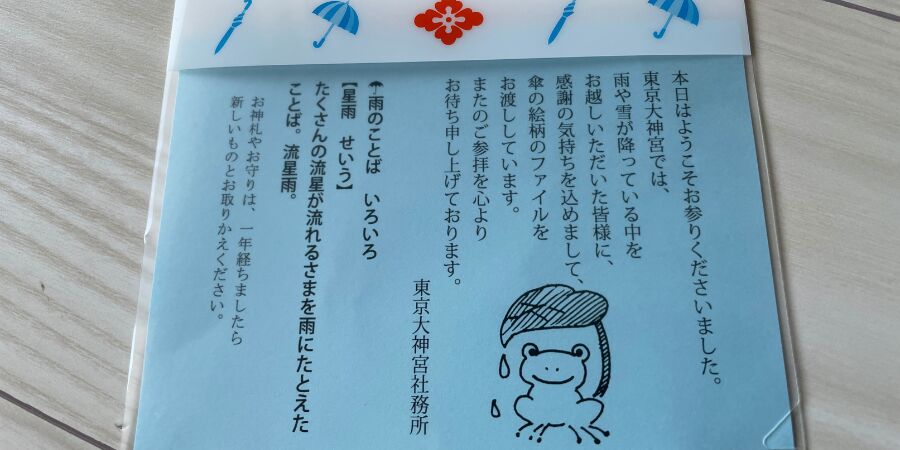 本日はようこそお参りくださいました。
東京大神宮では、
雨や雪が降っている中を
お越しいただいた皆様に、
感謝の気持ちを込めまして、
傘の絵柄のファイルを
お渡ししています。
またのご参拝を心より
お待ち申し上げております。
東京大神宮社務所
雨のことば いろいろ
【星雨 せいう】
たくさんの流星が流れるさまを雨にたとえた
ことば。流星雨。
お神札やお守りは、一年経ちましたら
新しいものとお取りかえください。